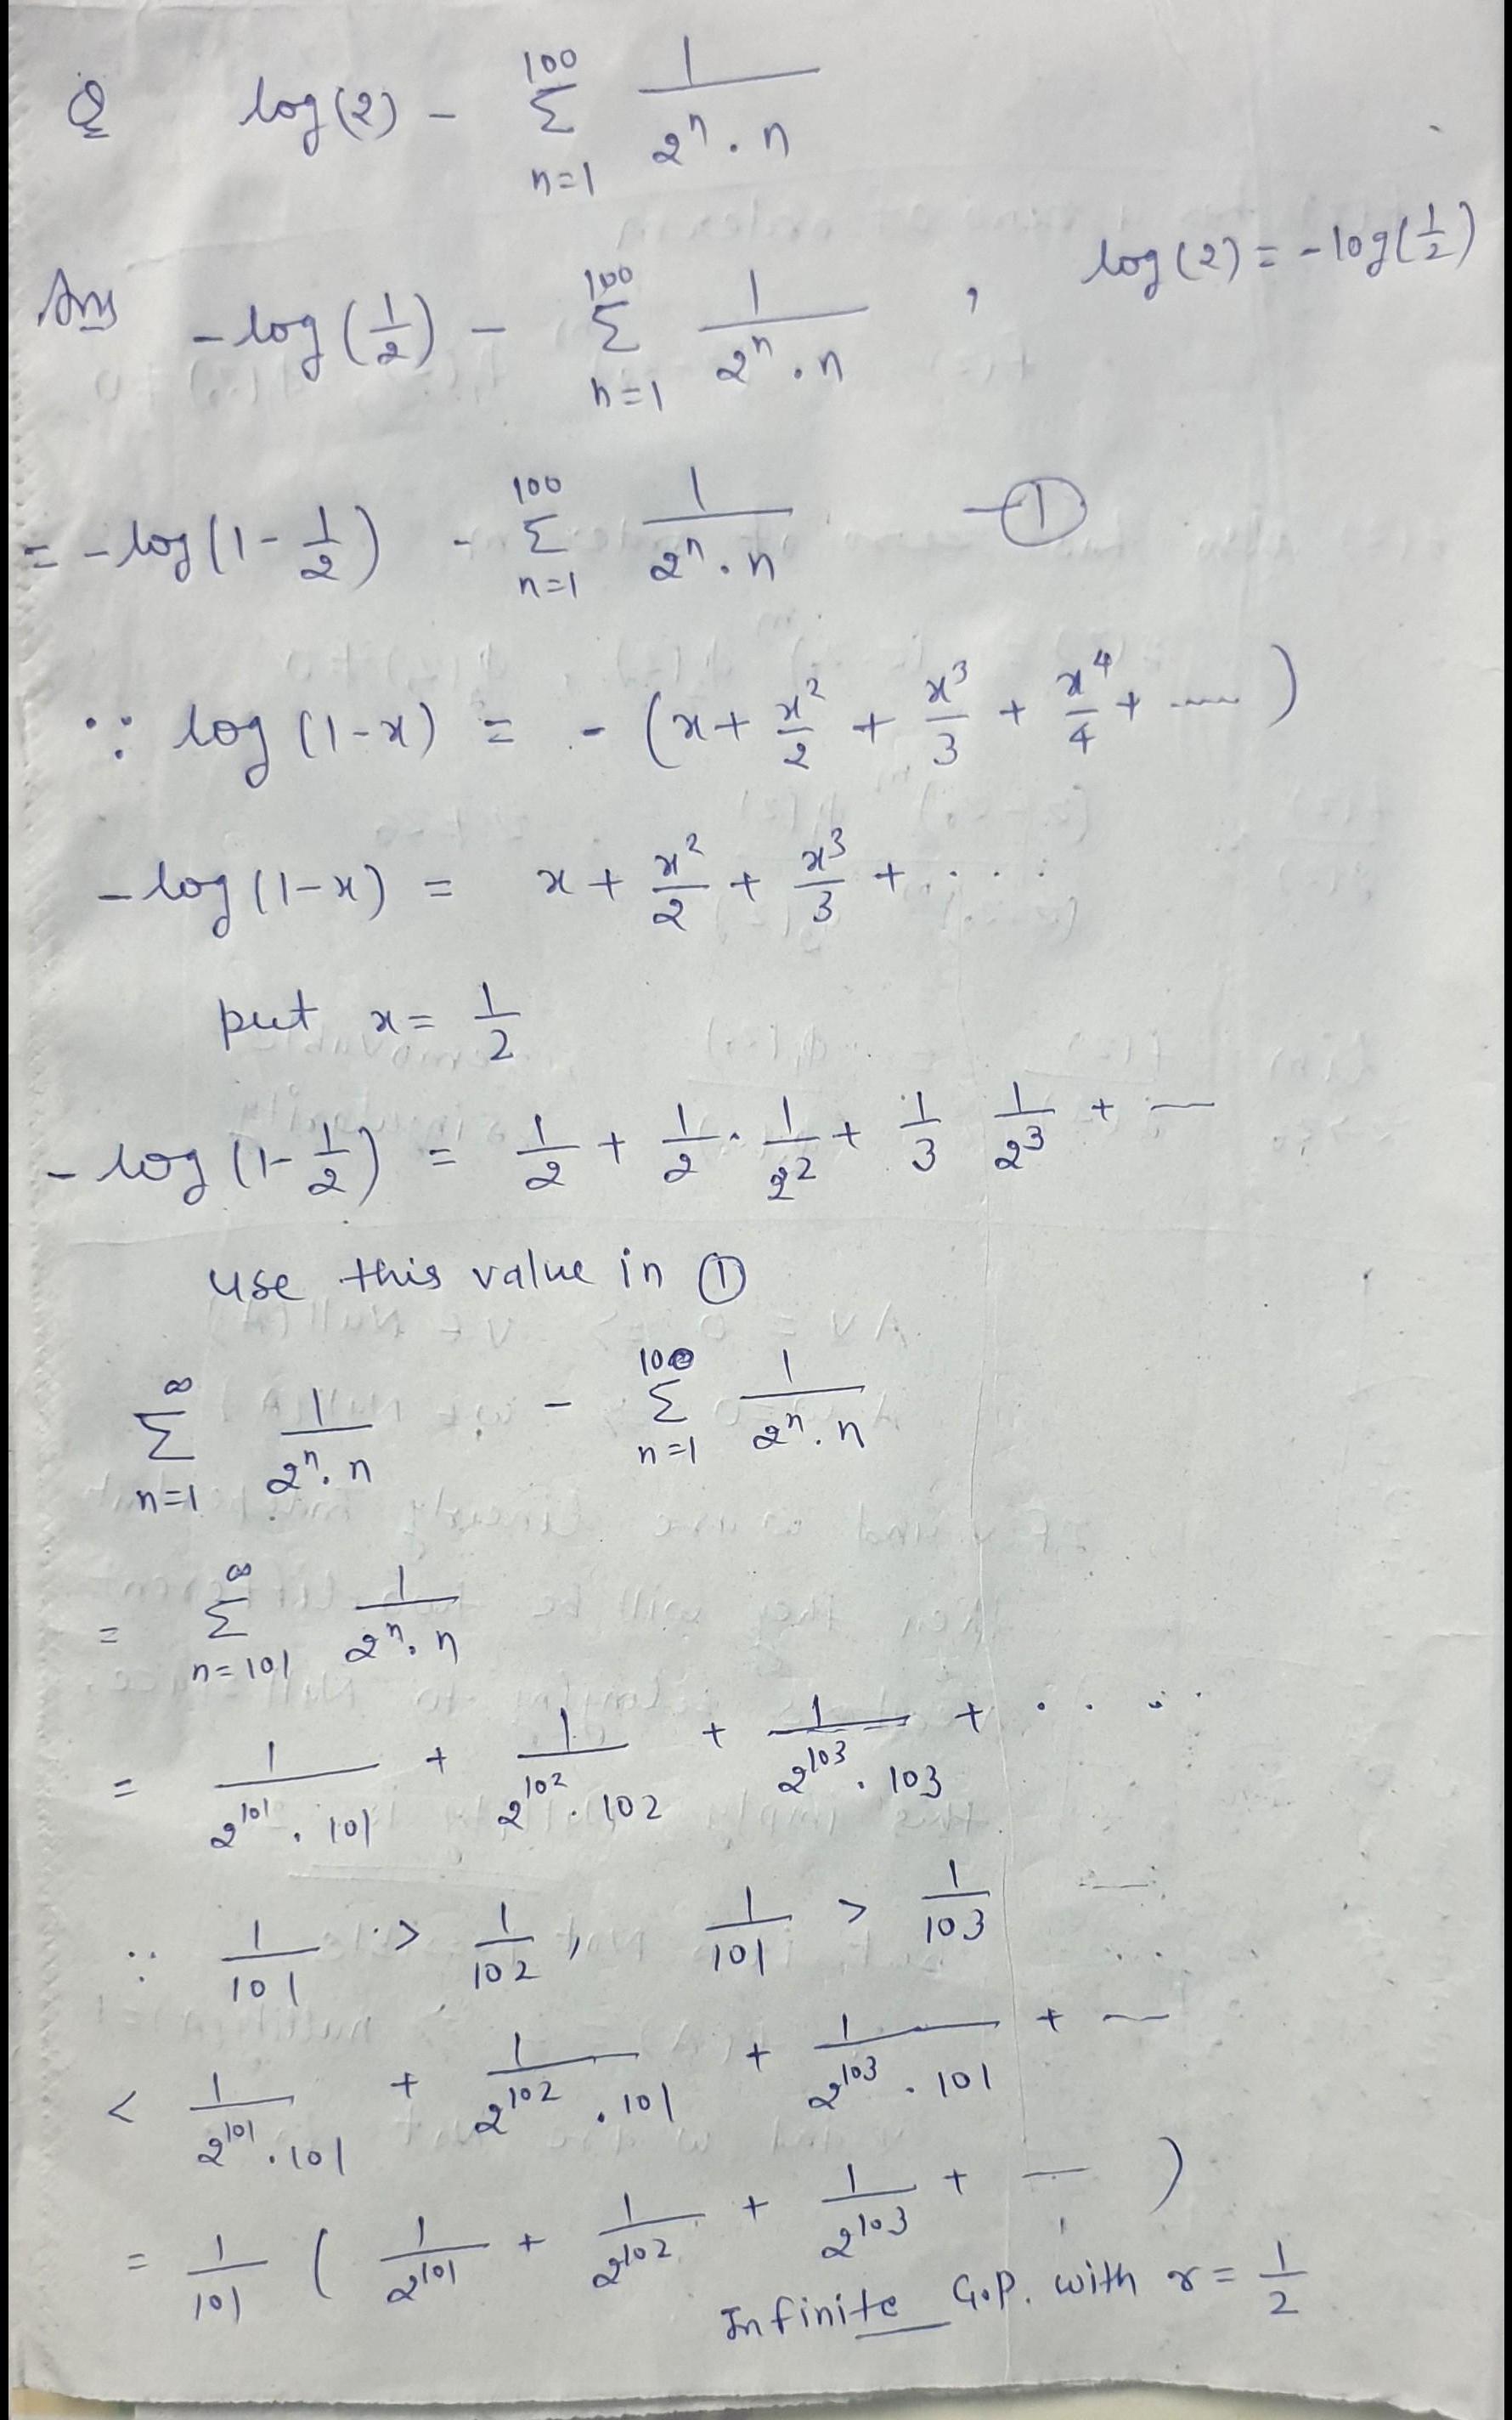 Q log(2) - 100 Σ n=1 1/(2^n . n)
Ans -log(1/2) - 100 Σ n=1 1/(2^n . n) , log(2) = -log(1/2)
= -log(1 - 1/2) - 100 Σ n=1 1/(2^n . n) —①
∵ log(1-x) = -(x + x^2/2 + x^3/3 + x^4/4 + ......)
-log(1-x) = x + x^2/2 + x^3/3 + . . .
put x = 1/2
-log(1 - 1/2) = 1/2 + 1/2 . 1/2^2 + 1/3 1/2^3 + —
use this value in ①
∞ Σ n=1 1/(2^n . n) - 100 Σ n=1 1/(2^n . n)
= ∞ Σ n=101 1/(2^n . n)
= 1/(2^101 . 101) + 1/(2^102 . 102) + 1/(2^103 . 103) + . . . .
∵ 1/101 > 1/102 , 1/101 > 1/103 ...
< 1/(2^101 . 101) + 1/(2^102 . 101) + 1/(2^103 . 101) + —
= 1/101 ( 1/2^101 + 1/2^102 + 1/2^103 + — )
Infinite G.P. with r = 1/2